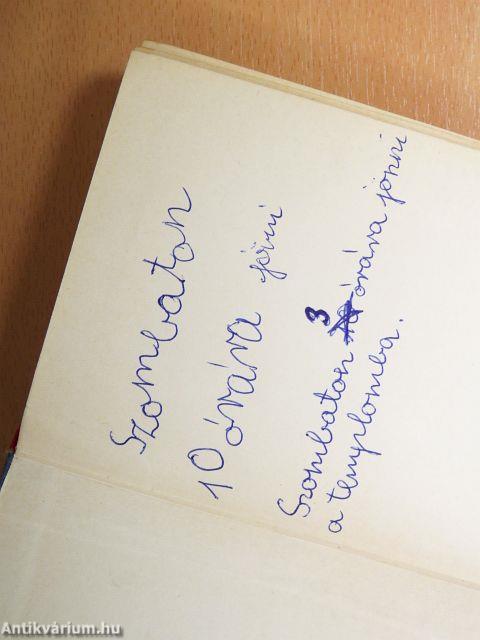 Szombaton
10 órára jönni
Szombaton 3 órára jönni
a templomba.
Antikvárium.hu